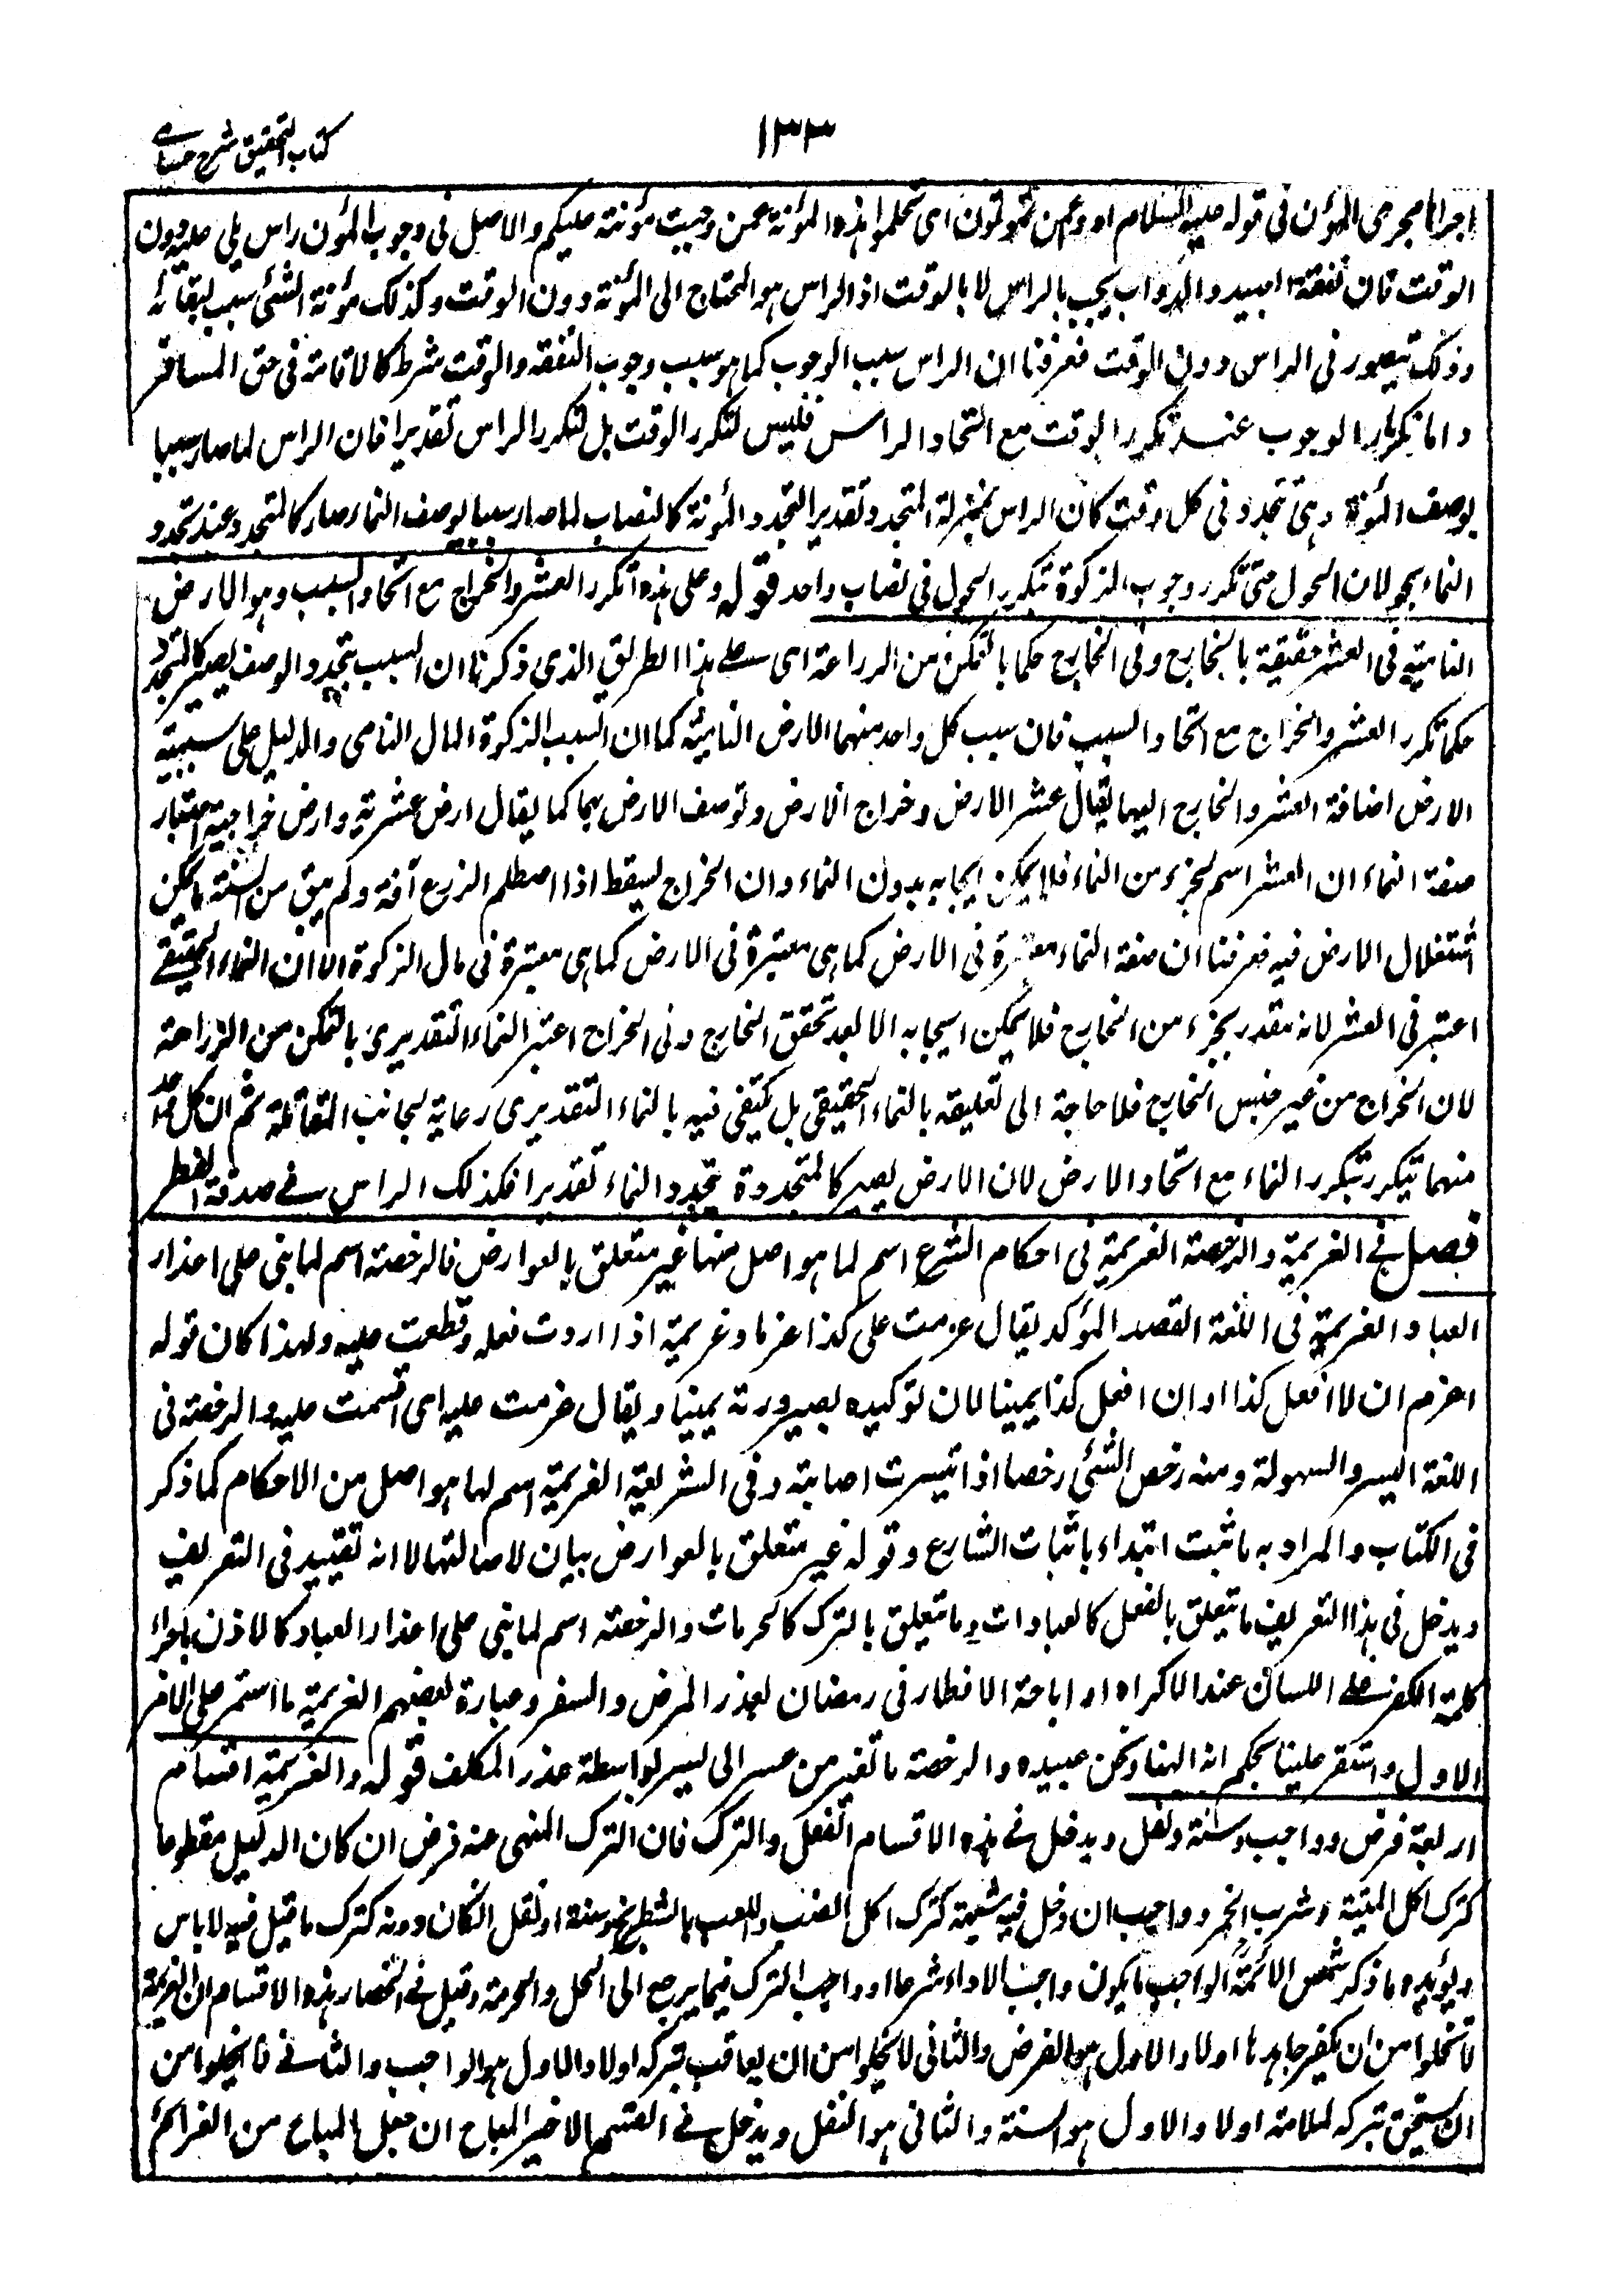 كتاب التحقيق شرح حسامى
١٣٣
اجراها مجرى المؤن فى قوله عليه السلام ادوا عمن تمونون اى تحملوا هذه المؤنة عمن وجبت مؤنته عليكم والاصل فى وجوب المؤن راس يلى عليه دون
الوقت فان نفقة العبيد والدواب يجب بالراس لا بالوقت اذ الراس هو المحتاج الى المؤنة دون الوقت وكذلك مؤنة الشئ سبب لبقائه
وذلك يتصور فى الراس دون الوقت فعرفنا ان الراس سبب الوجوب كما هو سبب وجوب النفقه والوقت شرط كالاقامة فى حق المسافر
واما تكرار الوجوب عند تكرر الوقت مع اتحاد الراس فليس لتكرر الوقت بل لتكرر الراس تقديرا فان الراس لما صار سببا
بوصف المؤنة وهى تتجدد فى كل وقت كان الراس بمنزلة المتجدد تقديرا لتجدد المؤنة كالنصاب لما صار سببا بوصف النماء صار كالمتجدد عند تجدد
النماء بحولان الحول حتى تكرر وجوب الزكوة بتكرر الحول فى نصاب واحد قوله وعلى هذه تكرر العشر والخراج مع اتحاد السبب وهو الارض
النامية فى العشر حقيقة بالخارج وفى الخارج حكما بالتمكن من الزراعة اى على هذا الطريق الذى ذكرنا ان السبب بتجدد الوصف يصير كالمتجدد
حكما تكرر العشر والخراج مع اتحاد السبب فان سبب كل واحد منهما الارض النامية كما ان السبب الزكوة المال النامى والدليل على سببية
الارض اضافة العشر والخارج اليهما يقال عشر الارض وخراج الارض وتوصف الارض بهما كما يقال ارض عشرية وارض خراجية اعتبار
صفة النماء ان العشر اسم لجزء من النماء فلا يمكن ايجابه بدون النماء وان الخراج يسقط اذا اصطلم الزرع آفة ولم يبق من السنة ما يمكن
استغلال الارض فيه فعرفنا ان صفة النماء معتبرة فى الارض كما هى معتبرة فى الارض كما هى معتبرة فى مال الزكوة الا ان النماء الحقيقے
اعتبر فى العشر لانه مقدر بجزء من الخارج فلا يمكن ايجابه الا بعد تحقق الخارج وفى الخراج اعتبر النماء التقديرى بالتمكن من الزراعة
لان الخراج من غير جنس الخارج فلا حاجة الى تعليقه بالنماء الحقيقى بل يكتفى فيه بالنماء التقديرى رعاية لجانب المقاتلة ثم ان كل واحد
منهما يتكرر بتكرر النماء مع اتحاد الارض لان الارض يصير كالمتجددة بتجدد النماء تقديرا فكذلك الراس فے صدقة الفطر
فصل فے العزيمة والرخصة العزيمة فى احكام الشرع اسم لما هو اصل منها غير متعلق بالعوارض فالرخصة اسم لما بنى على اعذار
العباد العزيمة فى اللغة القصد المؤكد يقال عزمت على كذا عزما وعزيمة اذا اردت فعله وقطعت عليه ولهذا كان قوله
اعزم ان لا افعل كذا او ان افعل كذا يمينا لان توكيده بصيرورته يمينا ويقال عزمت عليه اى اقسمت عليه والرخصة فى
اللغة اليسر والسهولة ومنه رخص الشئى رخصا اذا تيسرت اصابته وفى الشريعة العزيمة اسم لما هو اصل من الاحكام كما ذكر
فى الكتاب والمراد به ما ثبت ابتداء باثبات الشارع وقوله غير متعلق بالعوارض بيان لاصالتها لا انه تقييد فى التعريف
ويدخل فى هذا التعريف ما يتعلق بالفعل كالعبادات وما يتعلق بالترك كالحرمات والرخصة اسم لما بنى على اعذار العباد كالاذن باجراء
كلمة الكفر على اللسان عند الاكراه او اباحة الافطار فى رمضان بعذر المرض والسفر وعبارة بعضهم العزيمة ما استمر على الامر
الاول واستقر علينا بحكم انه الهنا ونحن عبيده والرخصة ما تغير من عسر الى يسر بواسطة عذر المكلف قوله والعزيمة اقسام
اربعة فرض وواجب وسنة ونفل ويدخل فے هذه الاقسام الفعل والترك فان الترك المنهى عنه فرض ان كان الدليل مقطوعا
كترك اكل الميتة وشرب الخمر وواجب ان دخل فيه شبهة كترك اكل الضب واللعب بالشطرنج وسنة او نفل ان كان دونه كترك ما قيل فيه لا باس
ويؤيده ما ذكر شمس الائمة الواجب ما يكون واجب الاداء شرعا او واجب الترك فيما يرجع الى الحل والحرمة وقيل فے انحصار هذه الاقسام ان العزيمة
لا تخلوا من ان يكفر جاحدها اولا والاول هو الفرض والثانى لا يخلوا من ان يعاقب بتركه اولا والاول هو الواجب والثانے لا يخلوا من
ان يستحق بتركه الملامة اولا والاول هو السنة والثانى هو النفل ويدخل فے القسم الاخير المباح ان جعل المباح من العزائم